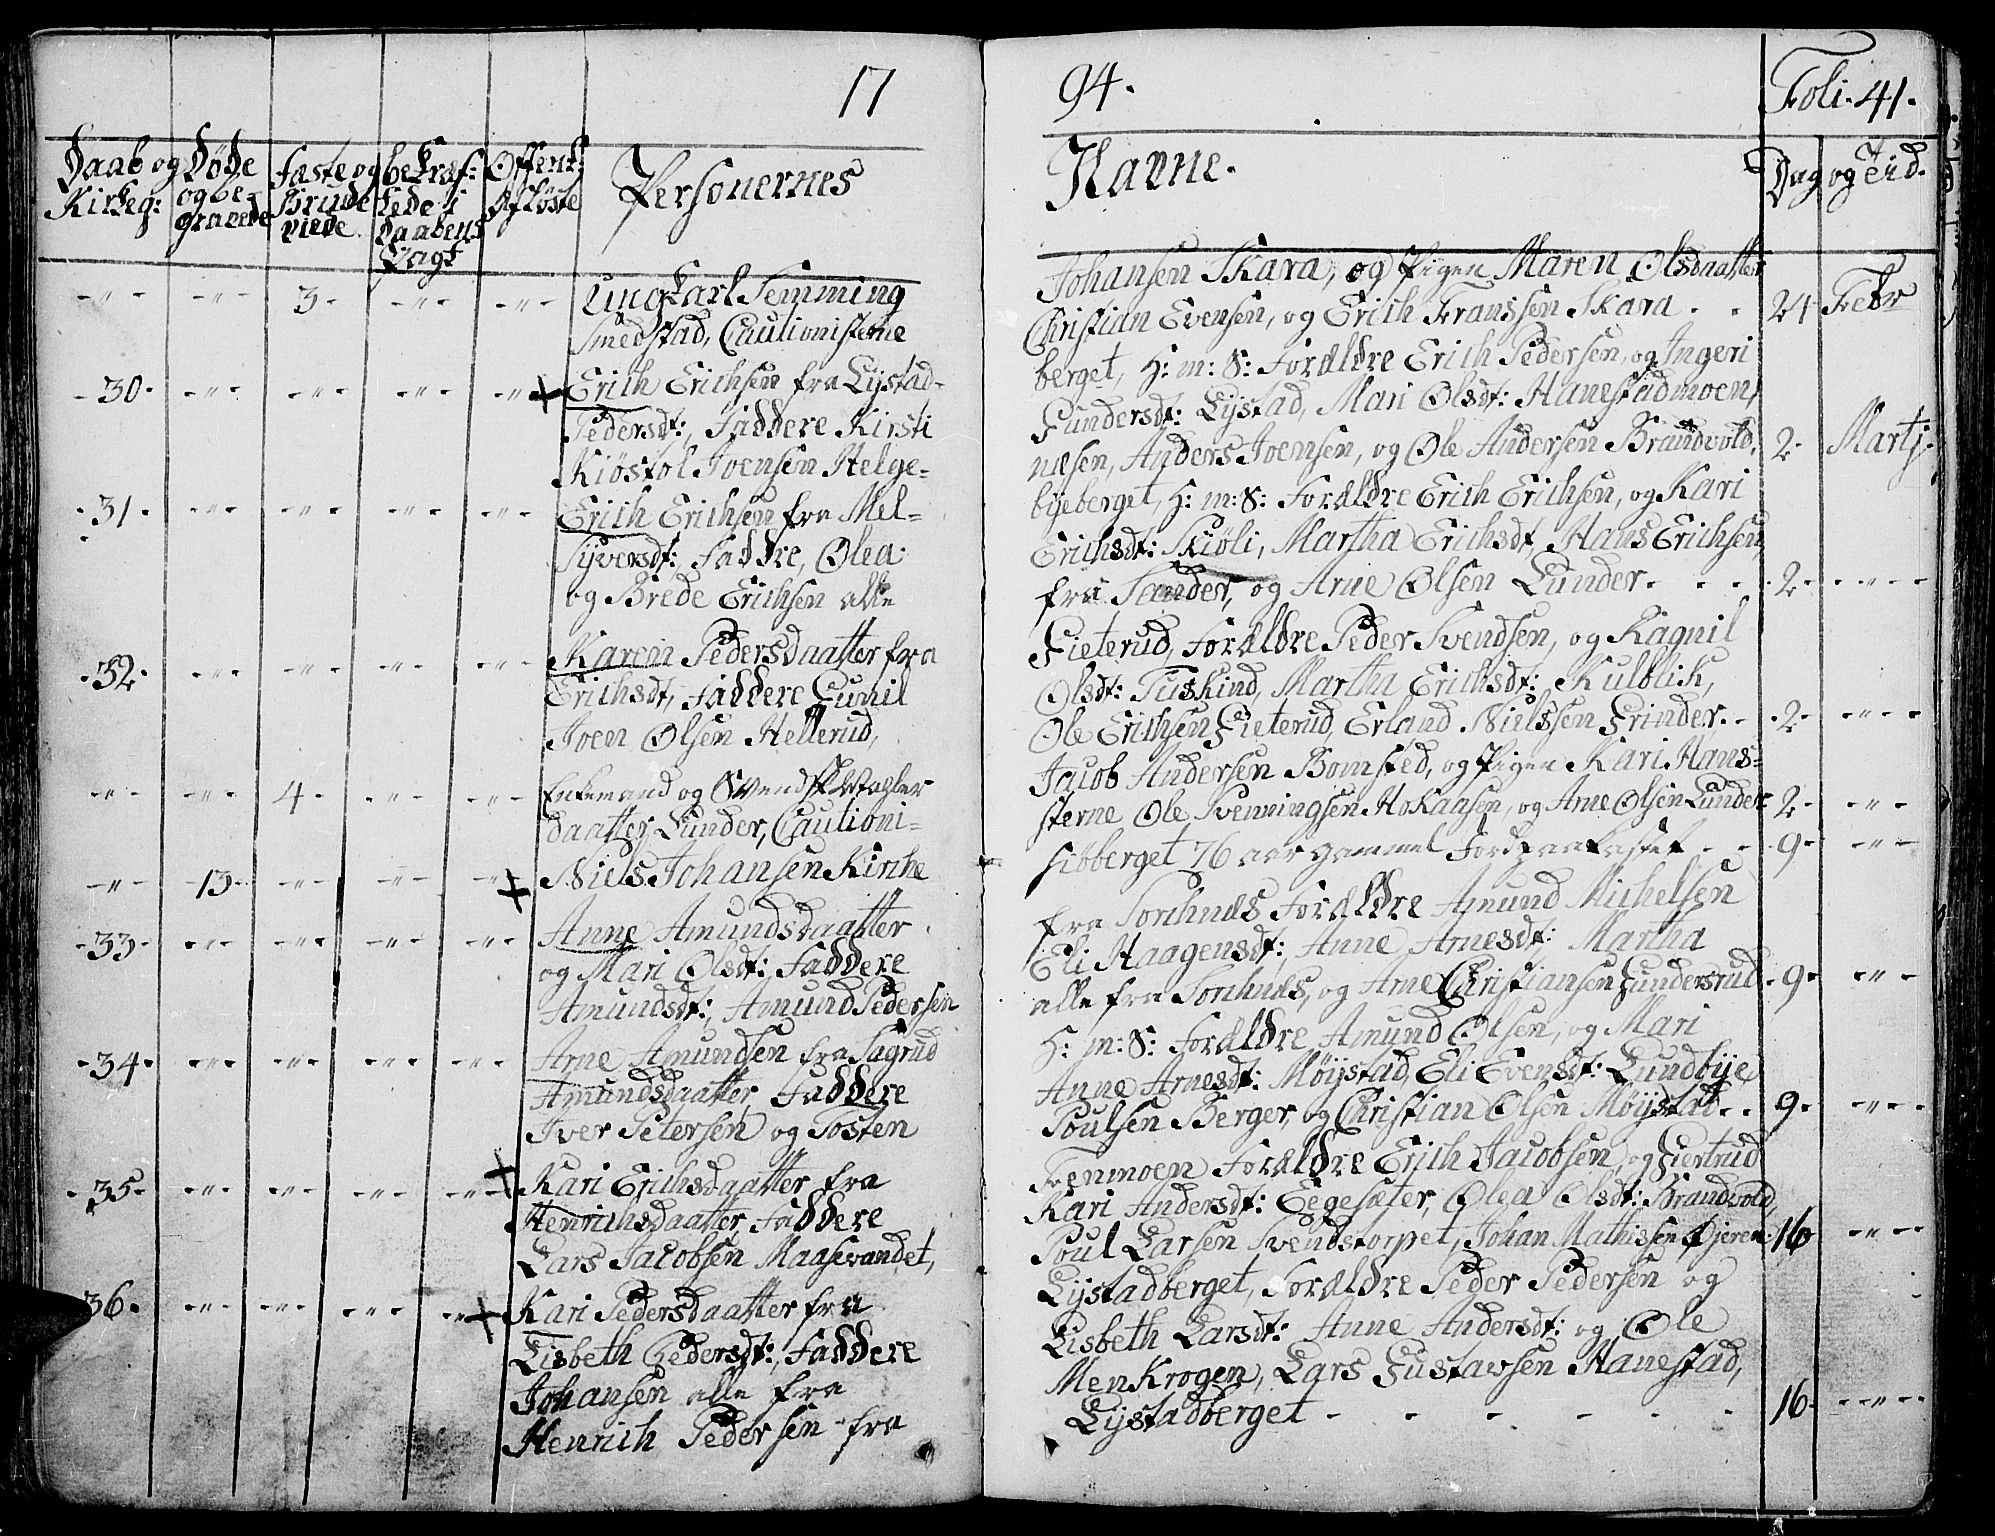 17 94. Foli. 41.
Daab og Kirkeg: Døde og begravede Fæste og Brudeviede bekræftede i Daabens Pagt Offentl: Afløste Personernes Navne. Dag og Tid.
-"- -"- 3- -"- -"- Ungkarl Semming Johansen Skara, og Pigen Maren Olsdaatter
Smedstad, Cautionisterne Christian Evensen, og Erich Franssen Skara - - 24 Febr
30- -"- -"- -"- -"- Erich Erichsen fra Lystad-berget, H: m: S: Forældre Erich Pedersen, og Ingeri
Pedersdt:, Faddere Kirsti Gundersdt: Lystad, Mari Olsdt: Hanestadmoen,
Kiøstol Joensen Helge-næsen, Anders Joensen, og Ole Andersen Brandvold, 2- Martj.
31- -"- -"- -"- -"- Erich Erichsen fra Mel-byeberget, H: m: S: Forældre Erich Erichsen, og Kari
Syversdt: Faddre, Olea Erichsdt: Skiøli, Martha Erichsdt, Hans Erichsen,
og Brede Erichsen alle fra Sander, og Arne Olsen Lunder - - - 2- -"-
32- -"- -"- -"- -"- Karen Pedersdaatter fra Gieterud, Forældre Peder Svendsen, og Ragnil
Erichsdt, Faddere Gunil Olsdt: Tuskind, Martha Erichsdt: Kulblik,
Joen Olsen Hellerud, Ole Erichsen Gieterud, Erland Nielssen Grinder - - 2- -"-
-"- -"- 4- -"- -"- Enkemand og Jacob Andersen Bomsted, og Pigen Kari Hans-
daatter Lunder, Cautioni-sterne Ole Svenningsen Hokaasen, og Arne Olsen Lunder 2- -"-
-"- 13- -"- -"- -"- Niels Johansen Kirke Sibberget 76 aar gammel - - 9- -"-
33- -"- -"- -"- -"- Anne Amundsdaatter fra Sorknæs Forældre Amund Michelsen
og Mari Olsdt: Faddere Eli Haagensdt:, Anne Arnesdt: Martha
Amundsdt:, Amund Pedersen alle fra Sorknæs, og Arne Christiansen Gundersrud - 9- -"-
34- -"- -"- -"- -"- Arne Amundsen fra Sagrud H: m: S: Forældre Amund Olsen, og Mari
Amundsdaatter Faddere Anne Arnesdt: Møystad, Eli Evensdt: Lundbye,
Iver Petersen og Tosten Poulsen Berger, og Christian Olsen Møystad - - 9- -"-
35- -"- -"- -"- -"- Kari Erichsdaatter fra Fenmoen Forældre Erich Jacobsen, og Giertrud
Henrichsdaatter, Faddere Kari Andersdt: Eegesæter, Olea Olsdt: Brandvold,
Lars Jacobsen Maasevandet, Poul Larsen Svendstorpet, Johan Mathissen Øjeren 16 -"-
36- -"- -"- -"- -"- Kari Pedersdaatter fra Lystadberget, Forældre Peder Pedersen og
Lisbeth Pedersdt:, Faddere Lisbeth Larsdt: Anne Andersdt: og Ole
Johansen alle fra Menkrogen, Lars Gustavsen Hanestad,
Henrich Pedersen fra Lystadberget - - - - - - 16- -"-